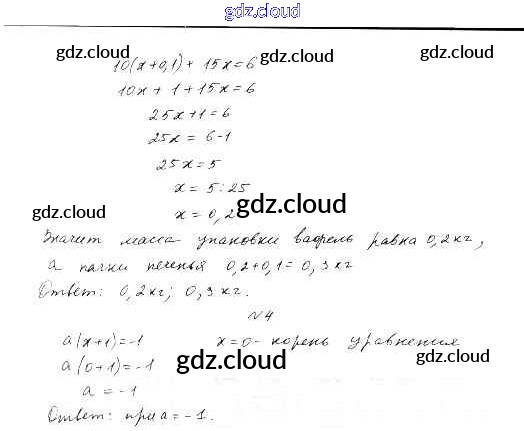 gdz.cloud
gdz.cloud gdz.cloud gdz.cloud
10(x+0,1)+ 15x=6
10x + 1 + 15x = 6
25x+1=6
25x = 6-1
25x=5
x = 5:25
gdz.cloud gdz.cloud
x = 0,2
Значит масса упаковки вафель равна 0,2кг,
а пачки печенья 0,2+0,1= 0,3кг
Ответ: 0,2кг; 0,3кг.
№4
a(x+1)=-1 x=0- корень уравнения
gdz.cloud gdz.cloud gdz.cloud
a(0+1)=-1
a = -1
Ответ: при a=-1.